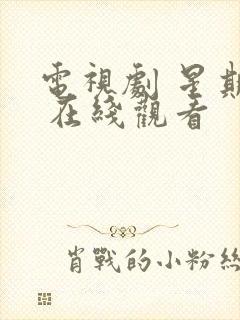 電視劇 星期
在綫觀看
肖戰的小粉絲